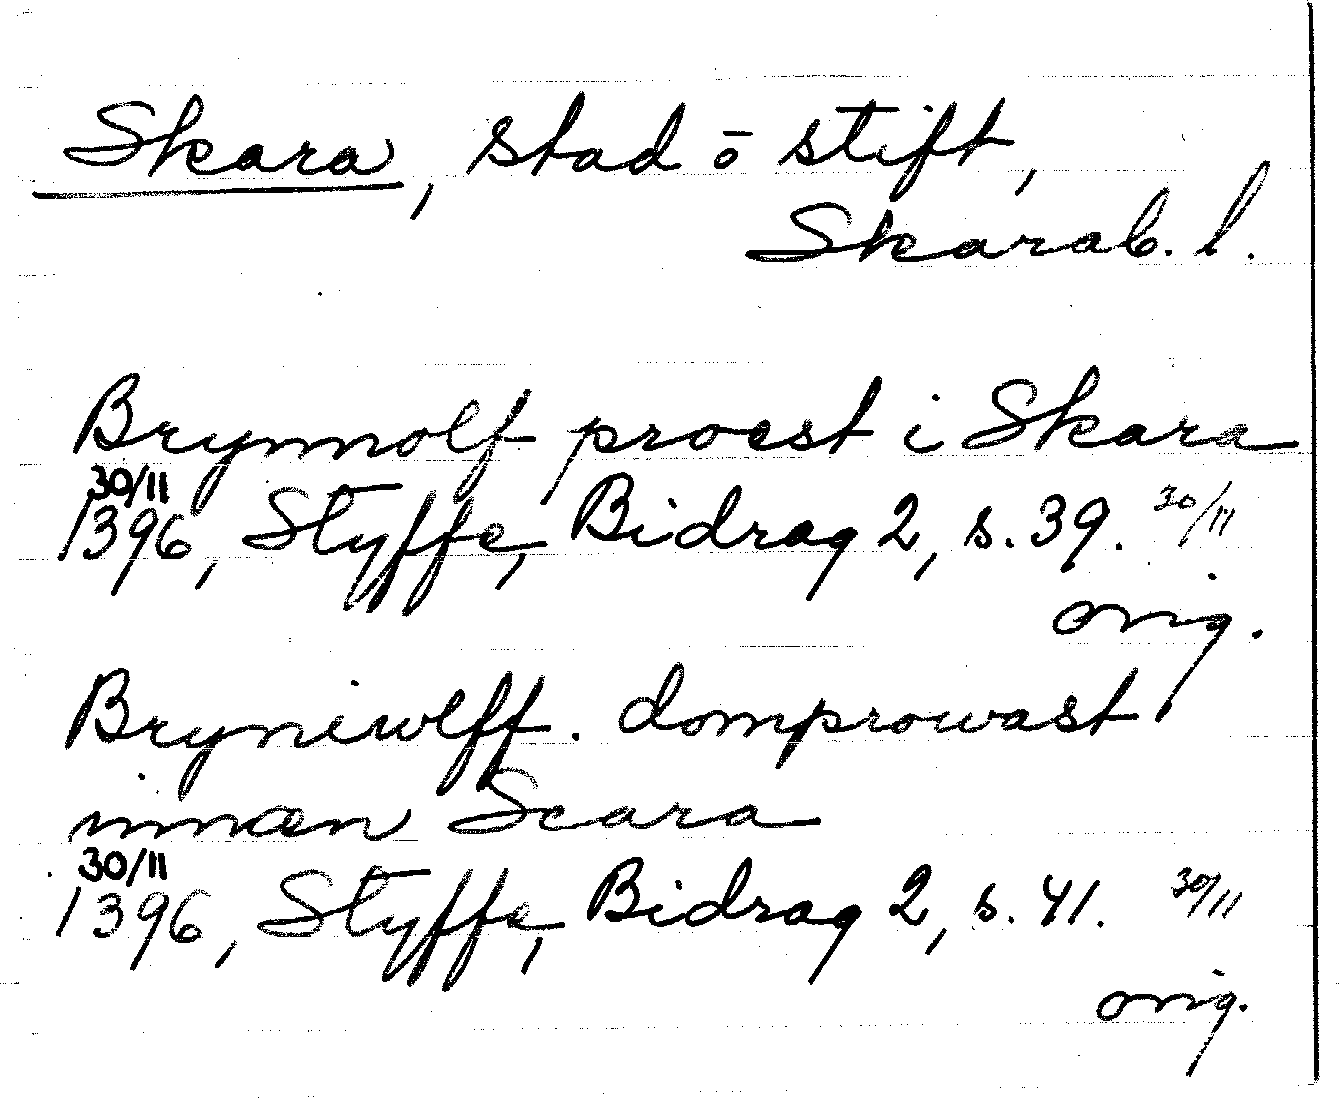 Skara, stad ō stift,
Skarab. l.
Brynnolf proest i Skara
30/11
1396, Styffe, Bidrag 2, s. 39. 30/11
orig.
Bryniwlff. domprowast
innæn Scara
30/11
1396, Styffe, Bidrag 2, s. 41. 30/11
orig.